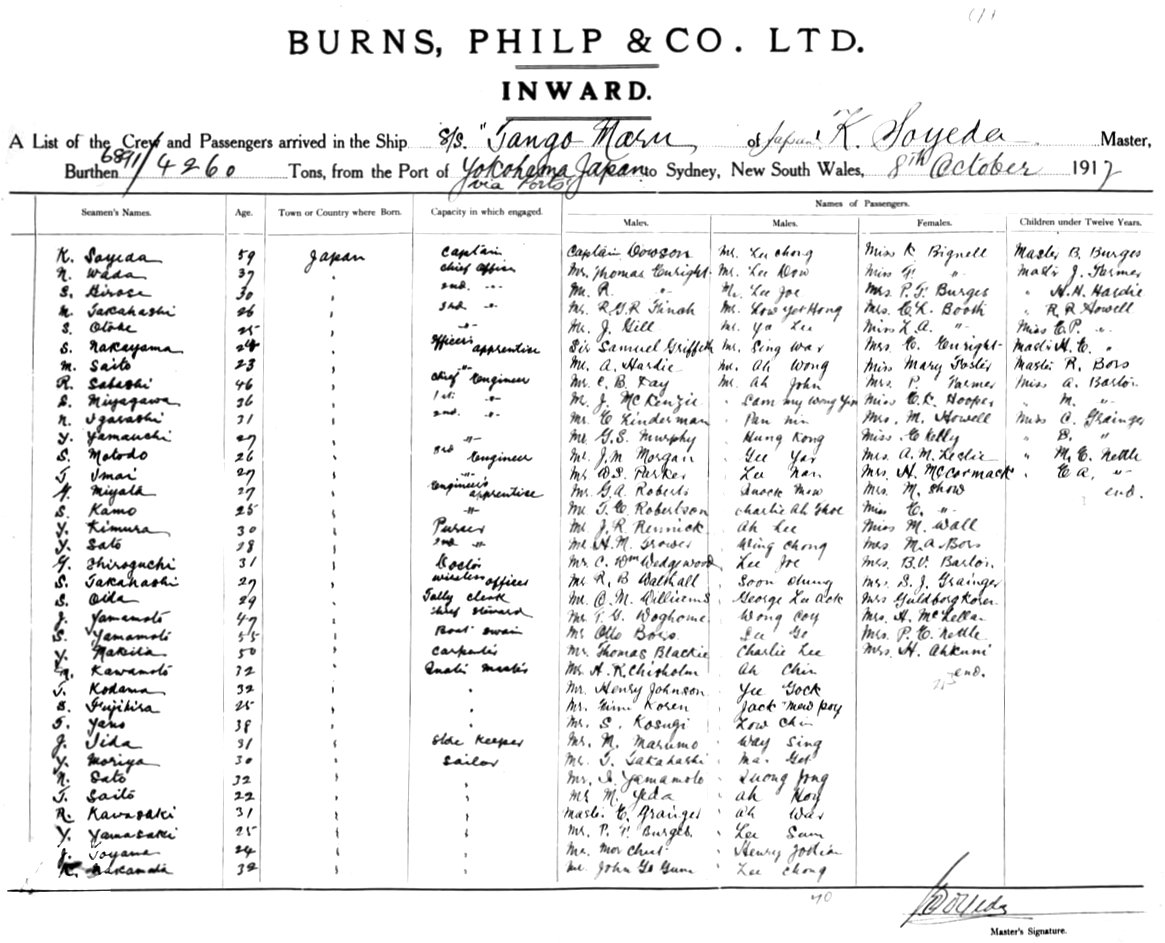 BURNS, PHILP & CO. LTD.
INWARD.
A List of the Crew and Passengers arrived in the Ship S/S. "Tango Maru of Japan K. Soyeda Master,
Burthen 6891/4260 Tons, from the Port of Yokohama Japan via Ports to Sydney, New South Wales, 8th October 1917
Names of Passengers.
Seamen's Names. Age. Town or Country where Born. Capacity in which engaged. Males. Males. Females. Children under Twelve Years.
K. Soyeda 59 Japan Captain Captain Dowson Mr. Lee Chong Miss K Bignell Master B. Burges
N. Wada 37 " Chief Officer Mr. Thomas Enright Mr. Lee Dow Miss F. " Master J. Farmer
S. Hirose 30 " 2nd. " Mr. R. " Mr. Lee Joe Mrs. P. F. Burges " H. H. Hardie
M. Takahashi 26 " 3rd " Mr. R G. R Finch Mr. Low Yet Hong Mrs. E. K. Booth " R. R Howell
S. Otohe 25 " " Mr. J. Gill Mr. Ya Lee Miss L. A. " Miss E. P. "
S. Nakayama 24 " Officer's apprentice Sir Samuel Griffith Mr. Sing War Mrs. E. Enright Master H. E. "
M. Saito 23 " " Mr. A. Hardie Mr. Ah Wong Miss Mary Foster Master R. Bors
R. 46 " Chief Engineer Mr. C. B. Fay Mr. Ah John Mrs. P. Farmer Miss A. Barton
S. Miyagawa 36 " 1st. " Mr. J. McKenzie " Sam my Wong Yon Miss E. K. Hooper " M. "
N. Igarashi 31 " 2nd. " Mr. E Linderman " Pan Mrs. M. Howell Miss C. Grainger
Y. Yamauchi 27 " " Mr. G. S. Murphy " Hung Kong Miss E Kelly " "
S. Motodo 26 " 3rd Engineer Mr. J. M Morgan " Gee Yar Mrs. A. M. Leslie " M. E. Nettle
T. Imai 27 " " Mr. D S. Parker " Lee Nan Mrs. H. McCormack " E A. "
Y. Miyata 27 " Engineer's apprentice Mr. G. A. Roberts " Mow Mrs. M. Show end.
S. Kamo 25 " " Mr. T. E. Robertson " Charlie Ah Miss E. "
Y. Kimura 30 " Purser Mr. J. R Rennick " Ah Lee Miss M. Wall
Y. Sato 28 " 2nd " Mr. H. M. Grower " Wing Chong Mrs M. A. Bors
Y. Shiroguchi 31 " Doctor Mr. C. Wm Wedgewood " Lee Joe Mrs. B. V. Barton
S. Takahashi 27 " wireless officer Mr. R. B Walthall " Soon Chung Mrs. S. J. Grainger
S. Oida 29 " Tally clerk Mr. C. M. Williams " George Lee Ack Mrs Guldborg Koren
J. Yamamoto 47 " Chief steward Mr. T. G. Woghome " Wong Coy Mrs. H. McLellan
S. Yamamoto 55 " Boat swain Mr Otto Bors " Lee Go Mrs. P. E. Nettle
Y. Makita 50 " Carpenter Mr. Thomas Blackie " Charlie Lee Mrs. H. Ahkuni
Kawamoto 32 " Quarter master Mr. H. K. Chisholm " Ah Chin end.
T. Kodama 32 " " Mr. Henry Johnson " Yee Gock
S. Fujihira 25 " " Mr. Koren " Jack Mew Poy
F. Yano 38 " " Mr. S. Kosugi " Low Chin
J. Iida 31 " Store keeper Mr. N. Marumo " Way Sing
Y. Moriya 30 " Sailor Mr. T. Takahashi " Ma
N. Sato 32 " " Mr. I. Yamamoto " Quong Jong
T. Saito 22 " " Mr. M. Yeda " Ah Hoy
R. Kawasaki 31 " " Master E. Grainger " Ah War
Y. Yamasaki 25 " " Mr. P. F. Burges " Lee Sum
J. Toyama 24 " " Mr. " Henry
K. Nakamata 32 " " Mr. John Go Gum " Lee Chong
40
K Soyeda
Master's Signature.